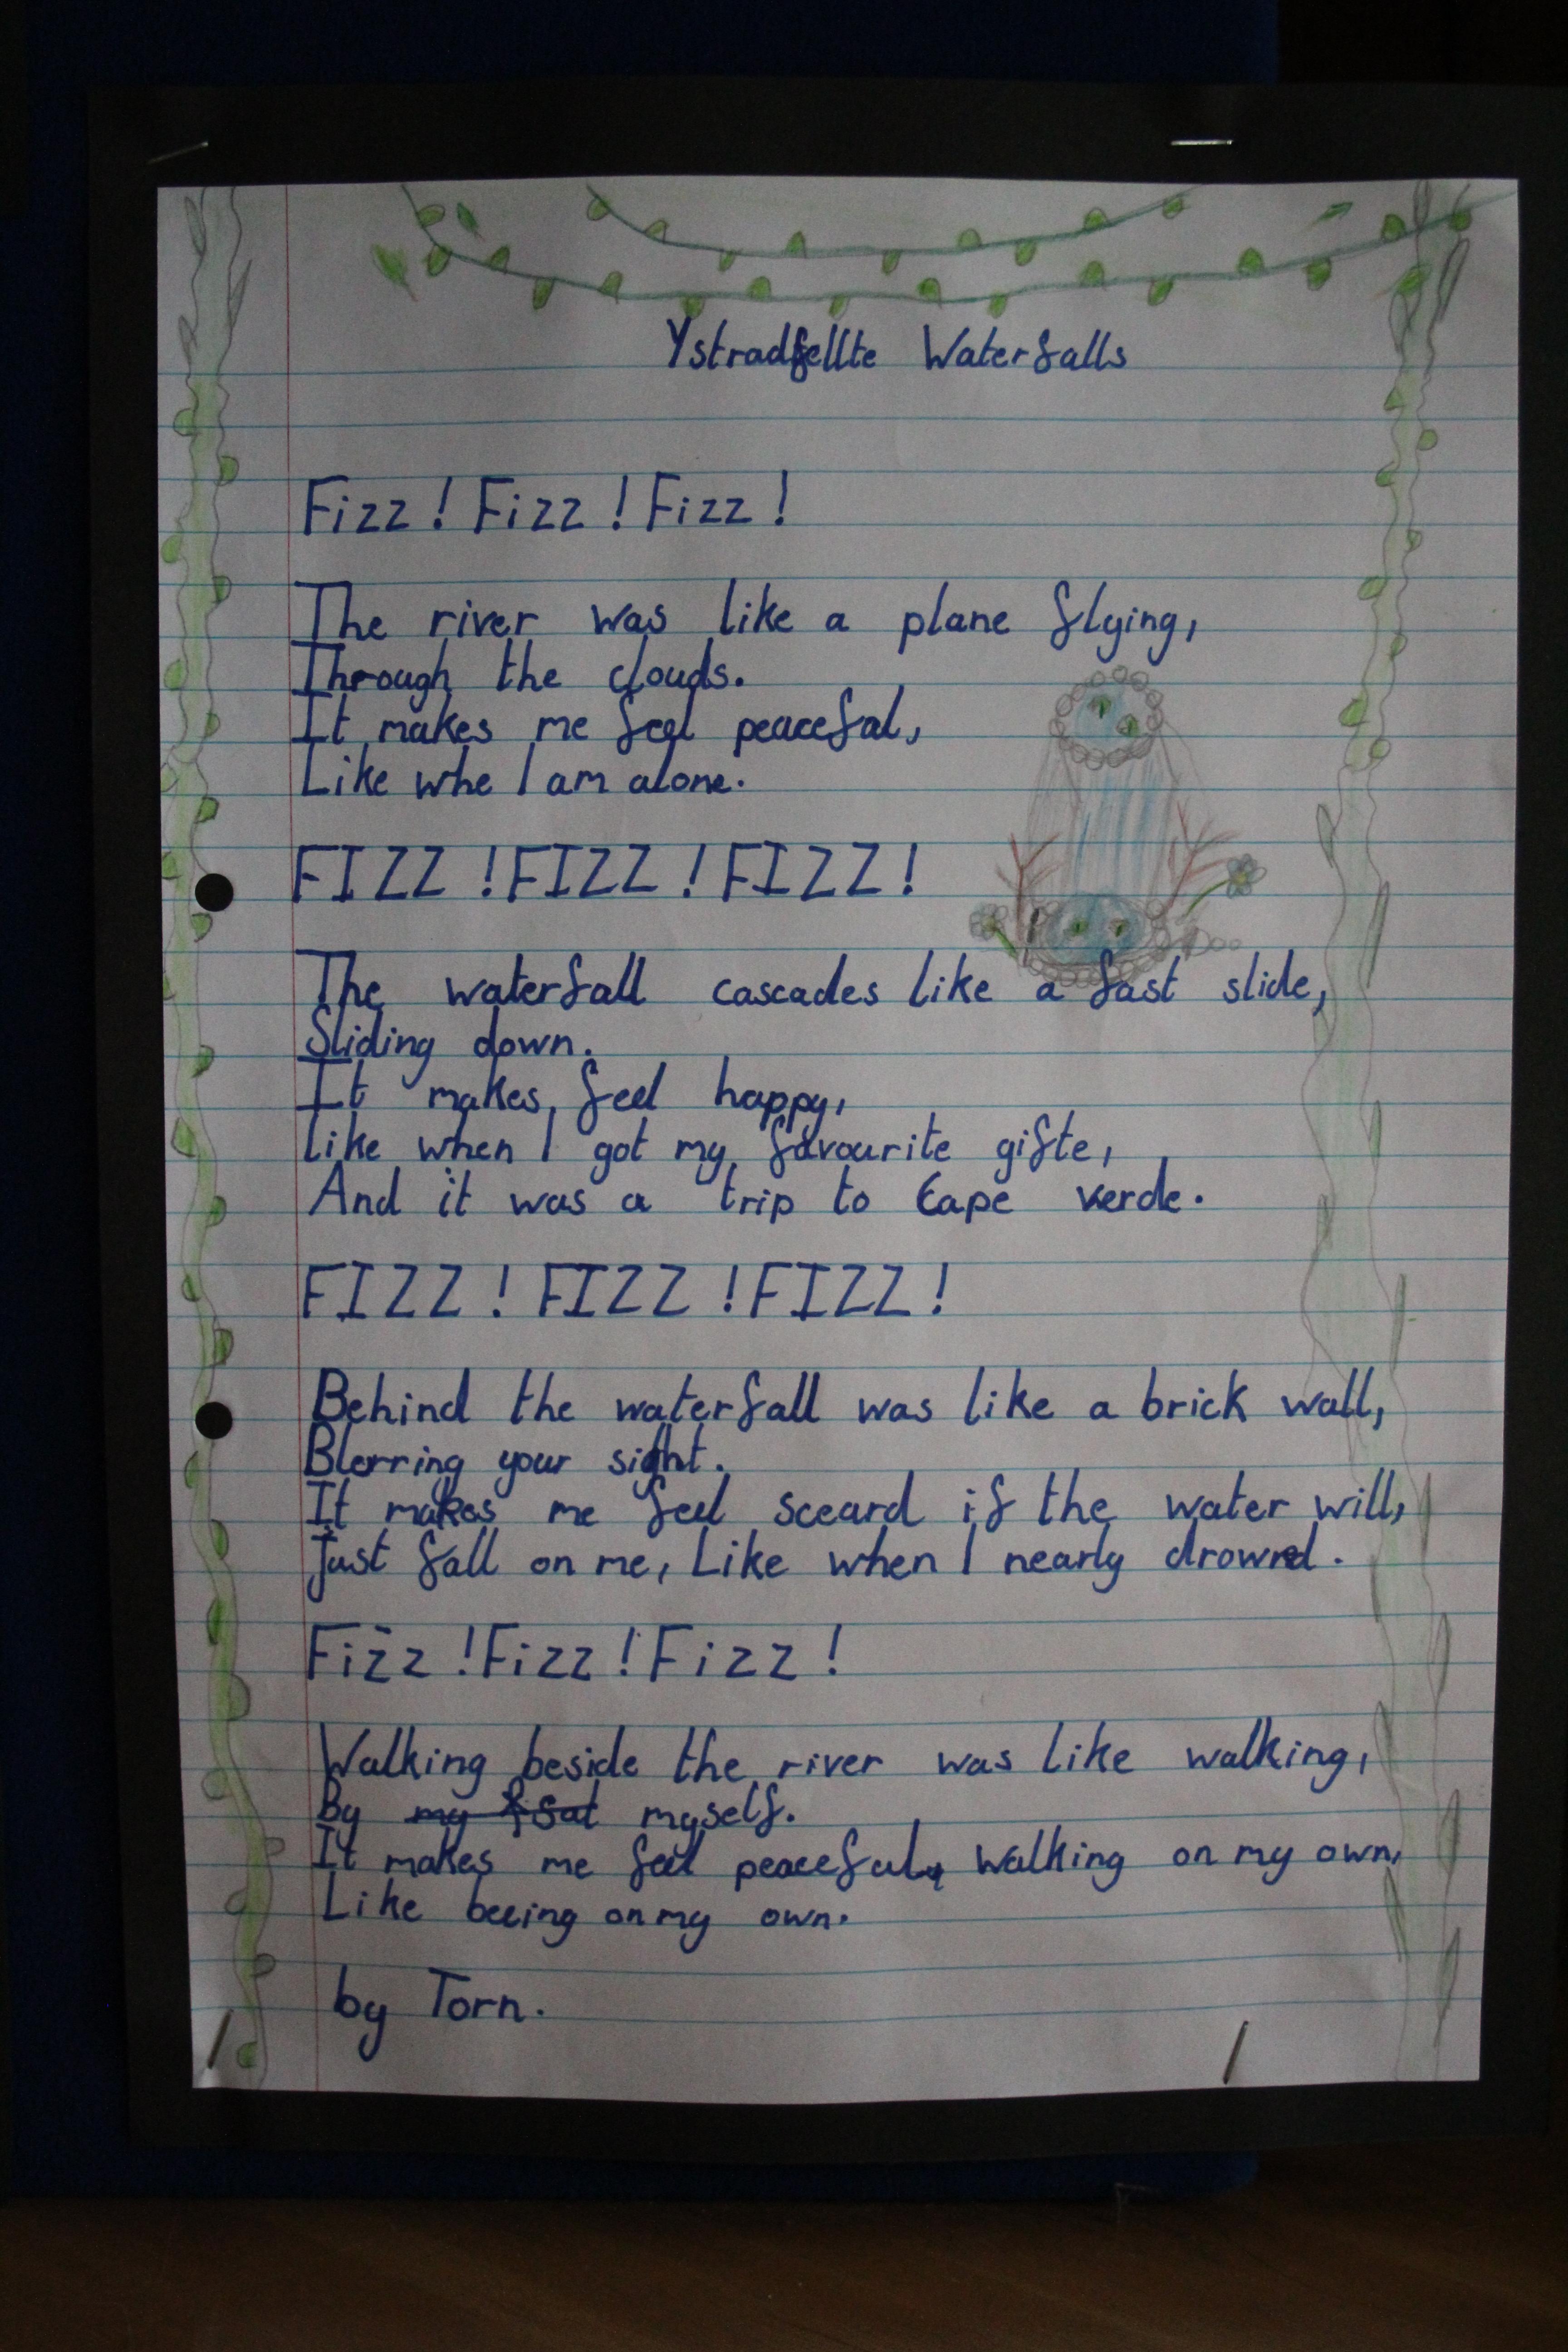 Ystradfellte Waterfalls
Fizz! Fizz! Fizz!
The river was like a plane flying,
Through the clouds.
It makes me feel peaceful,
Like whe I am alone.
FIZZ! FIZZ! FIZZ!
The waterfall cascades like a fast slide,
Sliding down.
It makes feel happy,
like when I got my favourite gifte,
And it was a trip to Cape verde.
FIZZ! FIZZ! FIZZ!
Behind the waterfall was like a brick wall,
Blerring your sight.
It makes me feel sceard if the water will,
Just fall on me, Like when I nearly drowned.
Fizz! Fizz! Fizz!
Walking beside the river was like walking,
By my myself.
It makes me feel peaceful, walking on my own,
Like beeing on my own.
by Torn.